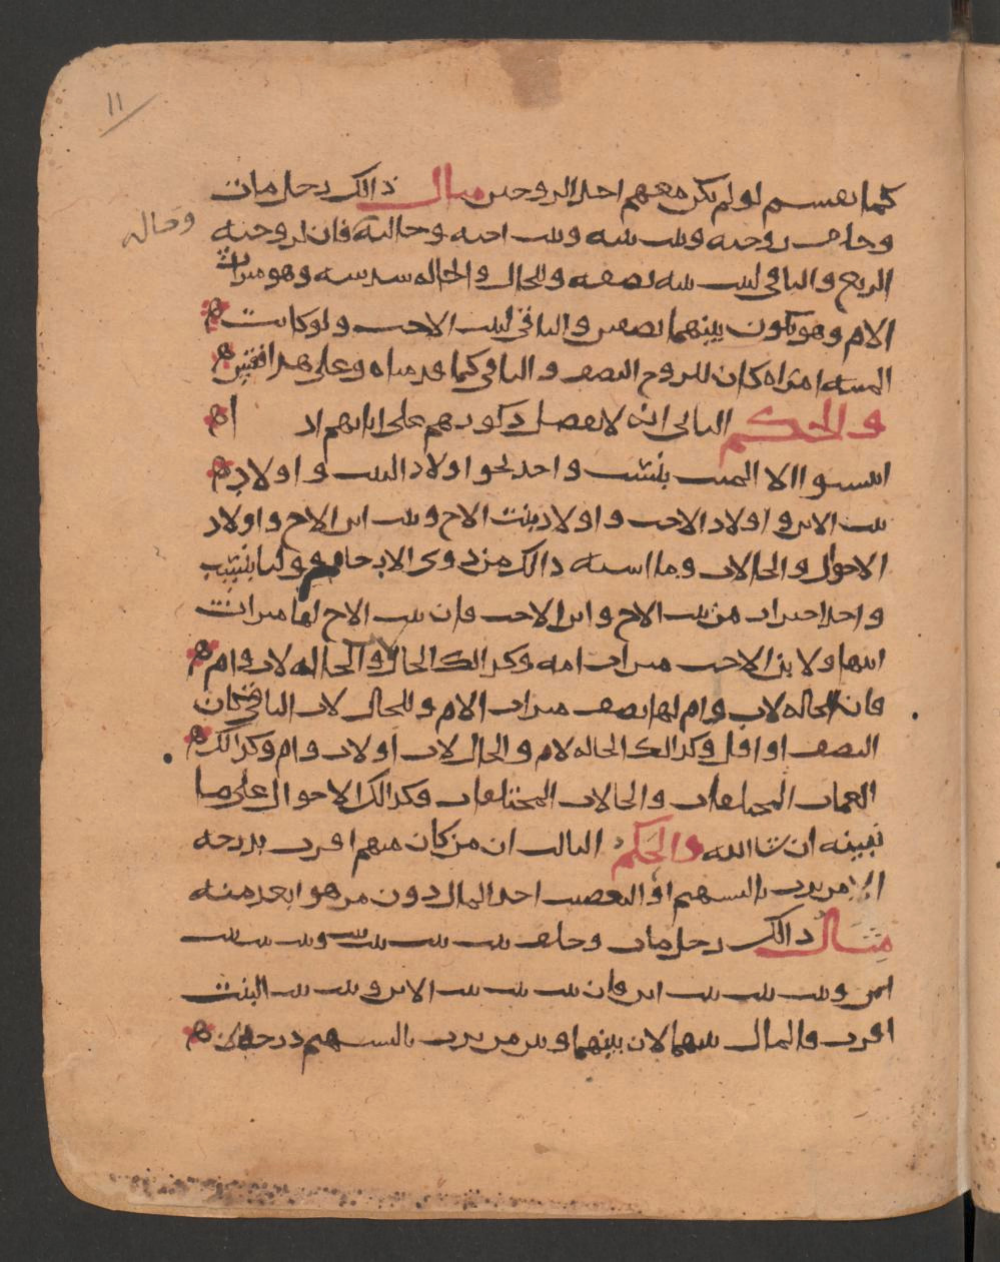 ١١
كما يقسم لو لم يكن معهم احد الزوجين مثال ذالك رجل مات
وخلف زوجته وبنت بنته وبنت اخته وخالته فان لزوجته
وخاله
الربع والباقي لبنت بنته نصفه وللخال والخاله سدسه وهو ميراث
الام وهو يكون بينهما نصفين والباقي لبنت الاخت ولو كانت
الميته امراه كان للزوج النصف والباقي كما قدمناه وعلى هذا فقس
والحكم الثاني انه لا يفضل ذكورهم على اناثهم اذ
استووا الا الى بنسب واحد نحو اولاد البنت واولاد
بنت الابن واولاد الاخت واولاد بنت الاخ وبنت ابن الاخ واولاد
الاخوال والخالات وما اشبه ذالك من ذوى الارحام
من بنت الاخ وابن الاخت فان بنت الاخ لها ميراث
ابيها ولابن الاخت ميراث امه وكذالك الخال والخاله لاب وام
فان الخاله لاب وام لها نصف ميراث الام وللخال لاب الباقي كان
النصف او اقل وكذالك الخاله لام والخال لاب او لاب وام وكذالك
العمات المختلفات والخالات المختلفات وكذالك الاخوال على ما
نبينه ان شا الله والحكم الثالث ان من كان منهم اقرب بدرجه
الى من يرث بالسهم او التعصيب اخذ المال دون من هو ابعد منه
مثال ذالك رجل مات وخلف بنت بنت بنت وبنت بنت
ابن وبنت بنت بنت ابن فان بنت بنت الابن وبنت بنت البنت
اقرب والمال بينهما لان بينهما وبين من يرث بالسهم درجه